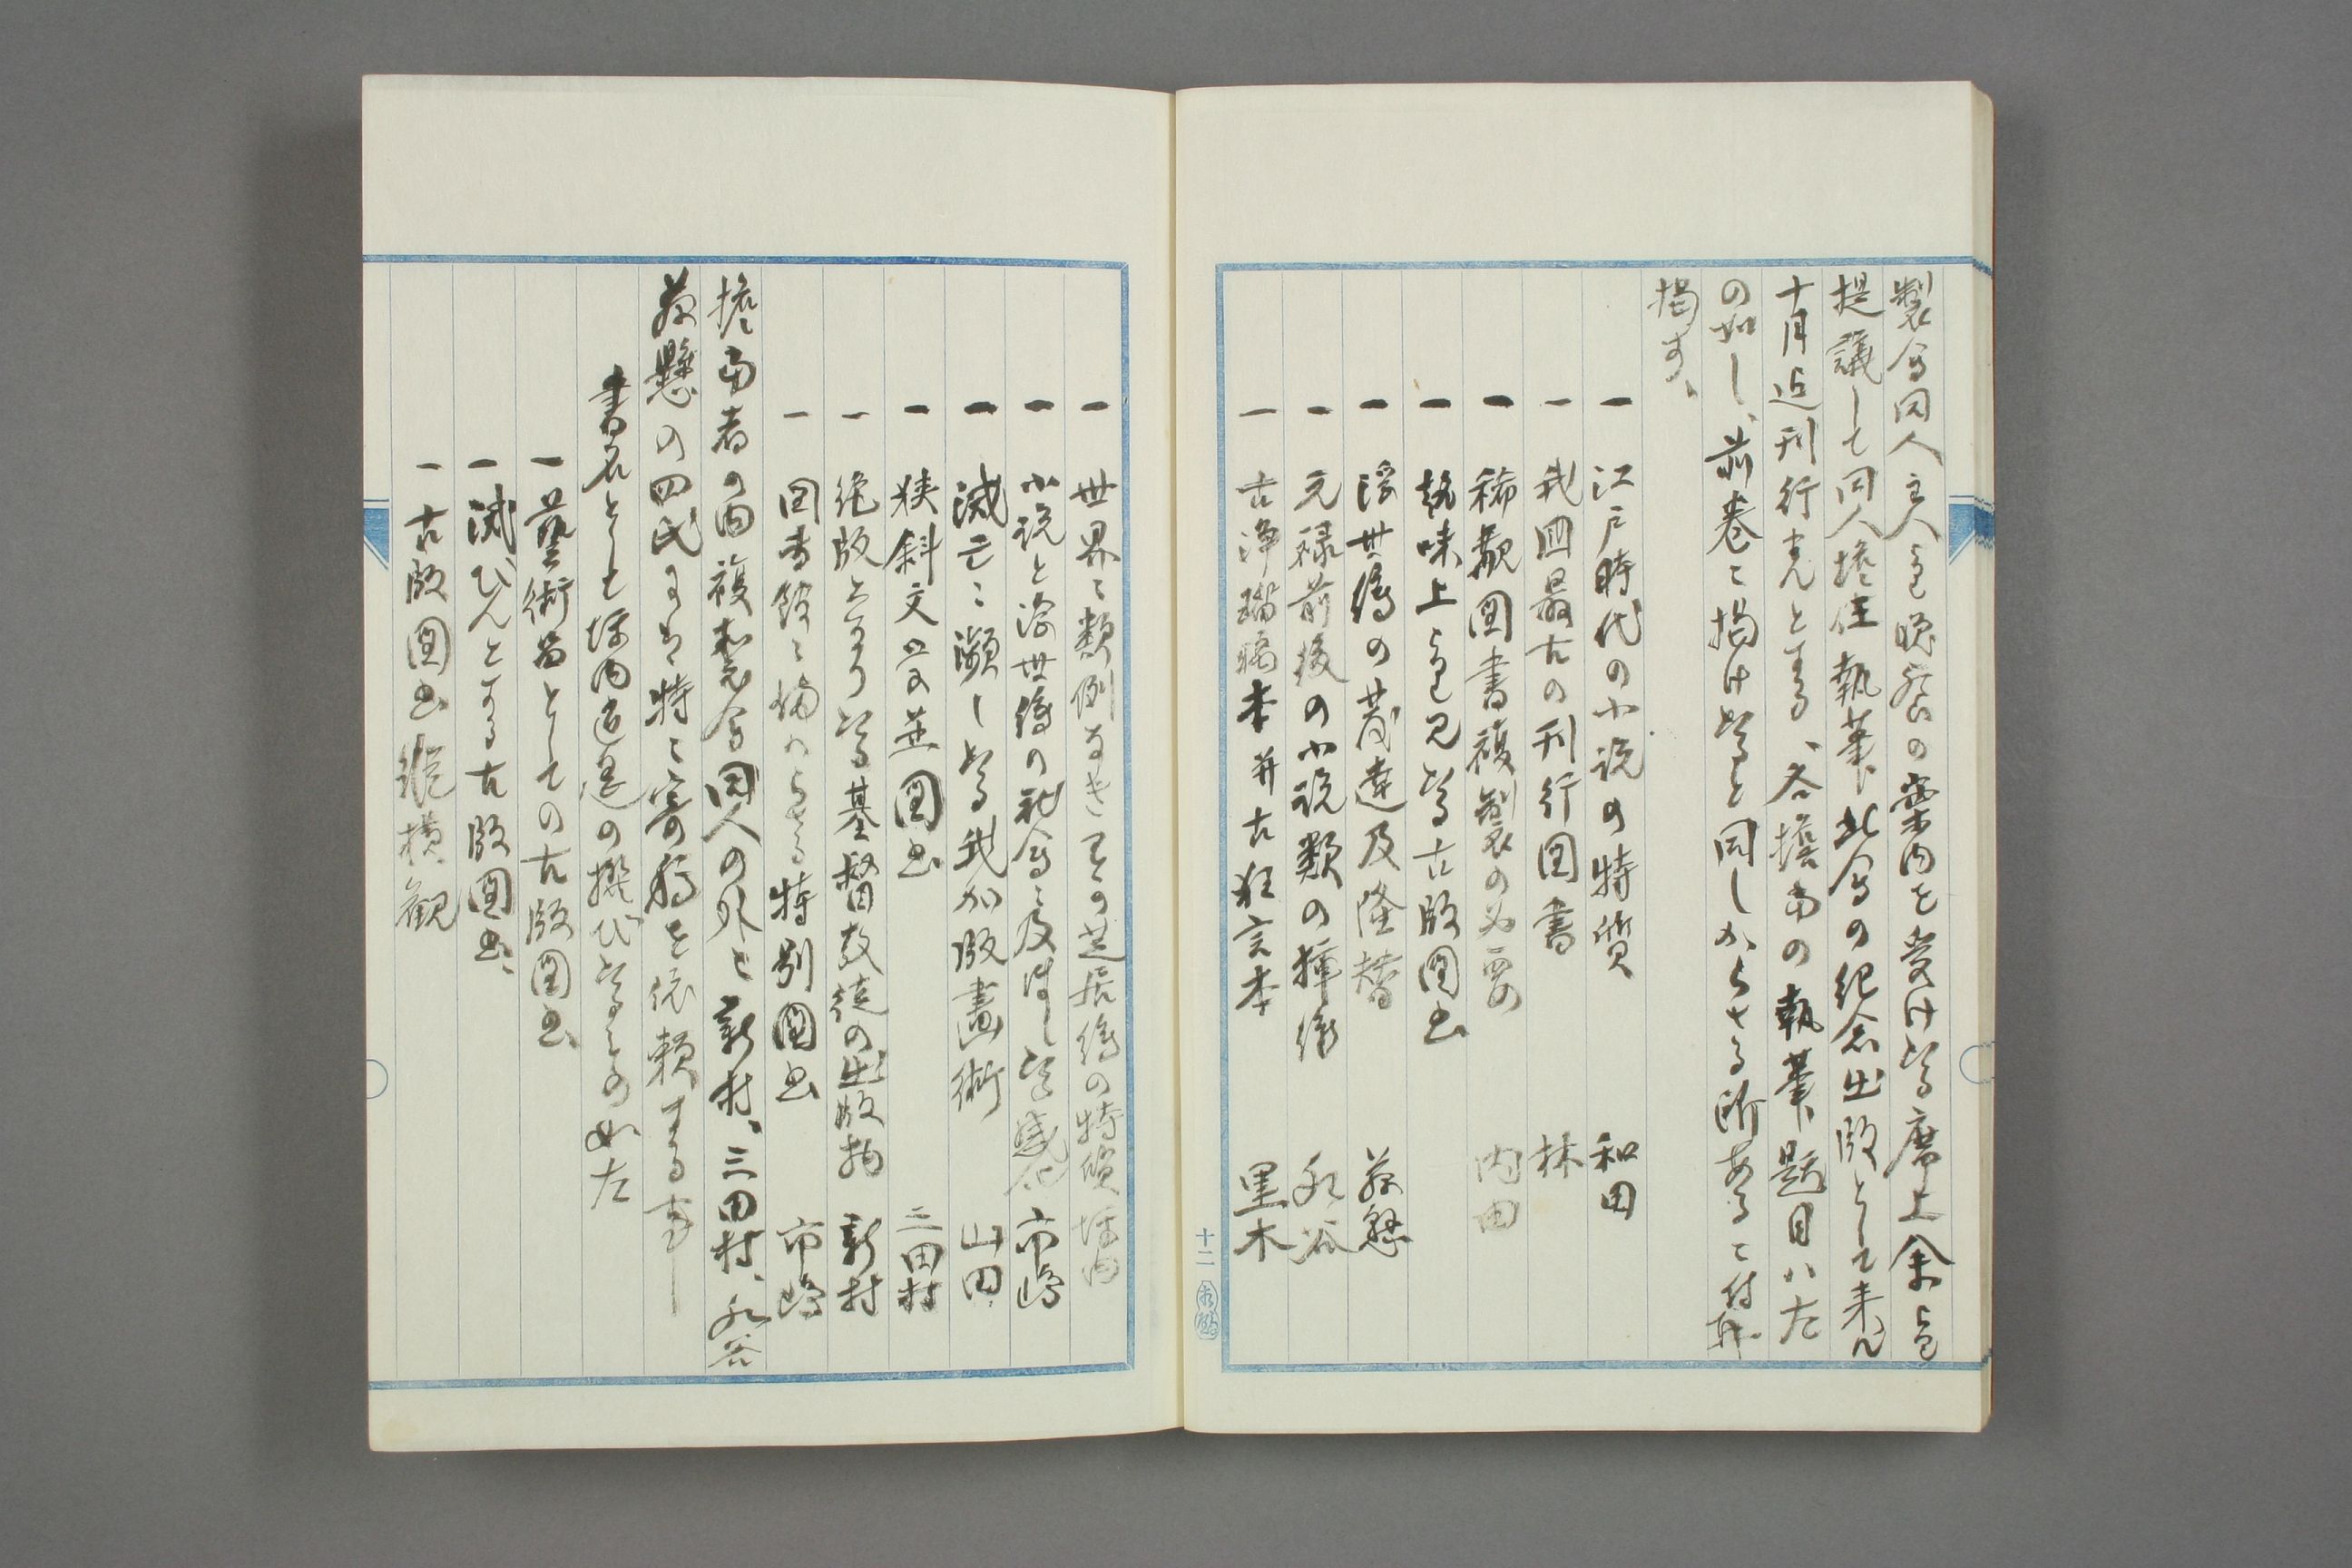 製会同人主人より晩餐の案内を受け皆々席上余より
提議して同人擔任執筆此会の紀念出版として来ル
十月迄刊行せんとする、各擔当の執筆題目ハ左
の如し、前巻ニ掲け置きと同しからさる所あるニ付
掲す、
一 江戸時代の小説の特質 和田
一 我国最古の刊行図書 林
一 稀覯図書複製の必要 内田
一 趣味上より見たる古版図書
一 浮世絵の発達及隆替
一 元禄前後の小説類の挿絵 水谷
一 古浄瑠璃本并古狂言本 黒木
一 世界ニ類例なき我の芝居絵の特質 坪内
一 小説と浮世絵の社会ニ及ほしたる感化 市嶋
一 滅亡ニ瀕したる我が版畫術 山田
一 狭斜文学並図書 三田村
一 絶版となりたる基督教徒の出版物 新村
一 図書館ニ備ハらさる特別図書 市嶋
擔当者の内複製会同人の外は新村、三田村、水谷
の四氏なれは特ニ寄稿を依頼する事
書名として坪内逍遥の撰びたるもの如左
一 藝術品としての古版図書
一 滅びんとする古版図書、
一 古版図書縦横観
十二